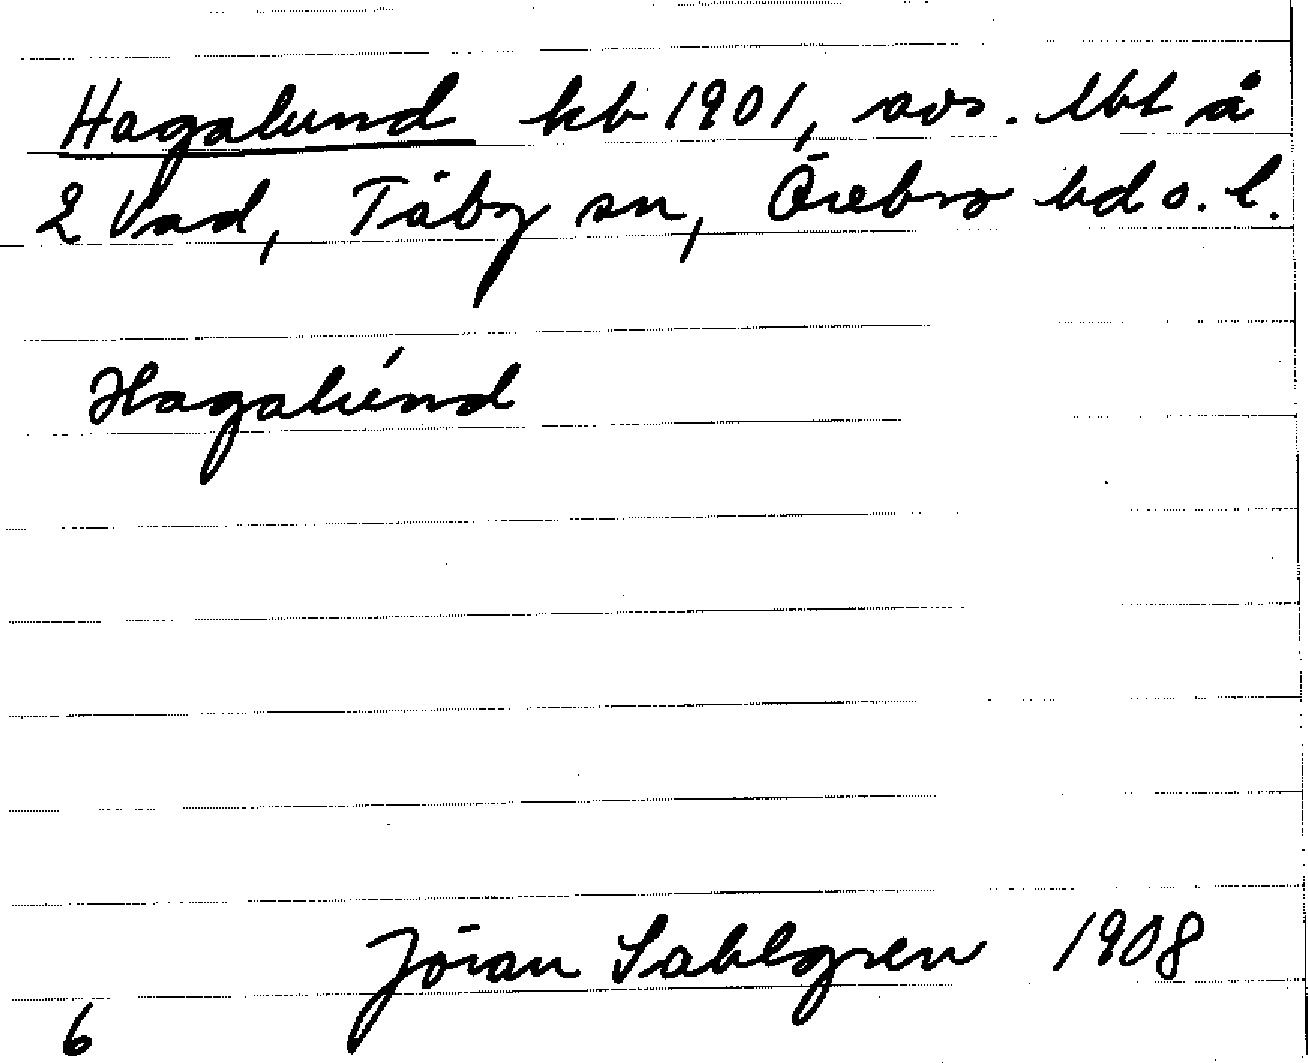 Hagalund kb 1901, avs. lbt å
2 Vad, Täby sn, Örebro hd o. l.
Hagalúnd
Jöran Sahlgren 1908
6